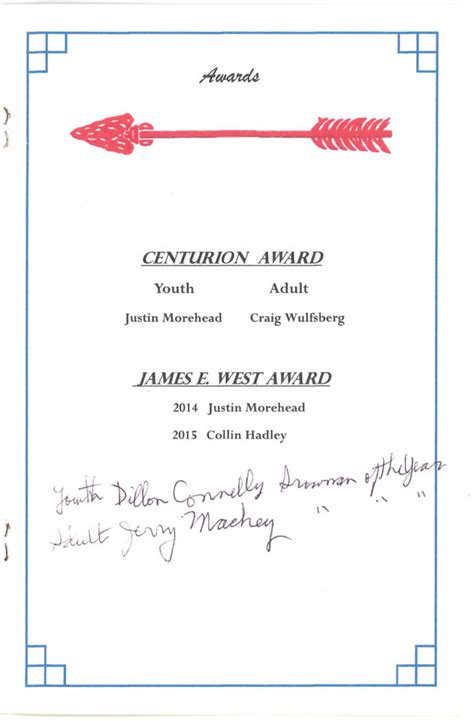 Awards
CENTURION AWARD
Youth Adult
Justin Morehead Craig Wulfsberg
JAMES E. WEST AWARD
2014 Justin Morehead
2015 Collin Hadley
Youth Dillon Connelly of the Year
Adult Jerry Mackey " " "